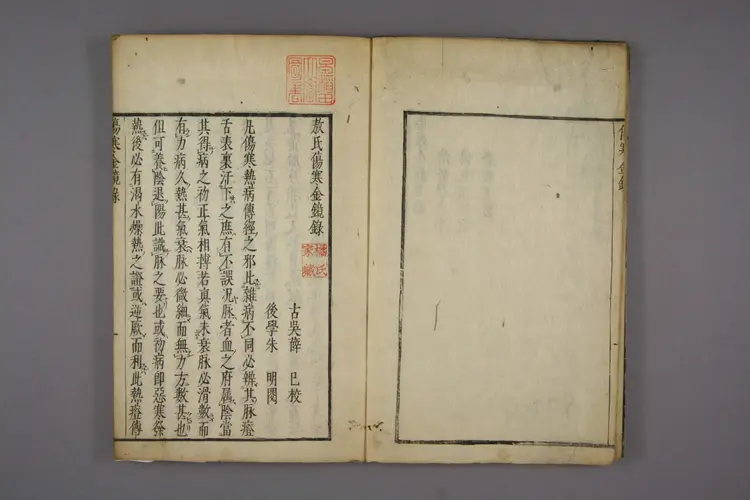 敖氏傷寒金鏡錄
古吳薛 巳校
後學朱 明閱
凡傷寒熱病傳經之邪比雜病不同必辨其脉證
舌表裏汗下之庶有不誤况脉者血之府属陰當
其得病之初正氣相搏若真氣未衰脉必滑數而
有力病久熱甚氣衰脉必微細而無力方數甚也
但可養陰退陽此識脉之要也或初病即惡寒發
熱後必有渴水燥熱之證或逆厥而利此熱證傳
傷寒金鏡錄
傷寒金鏡
橘氏
家藏